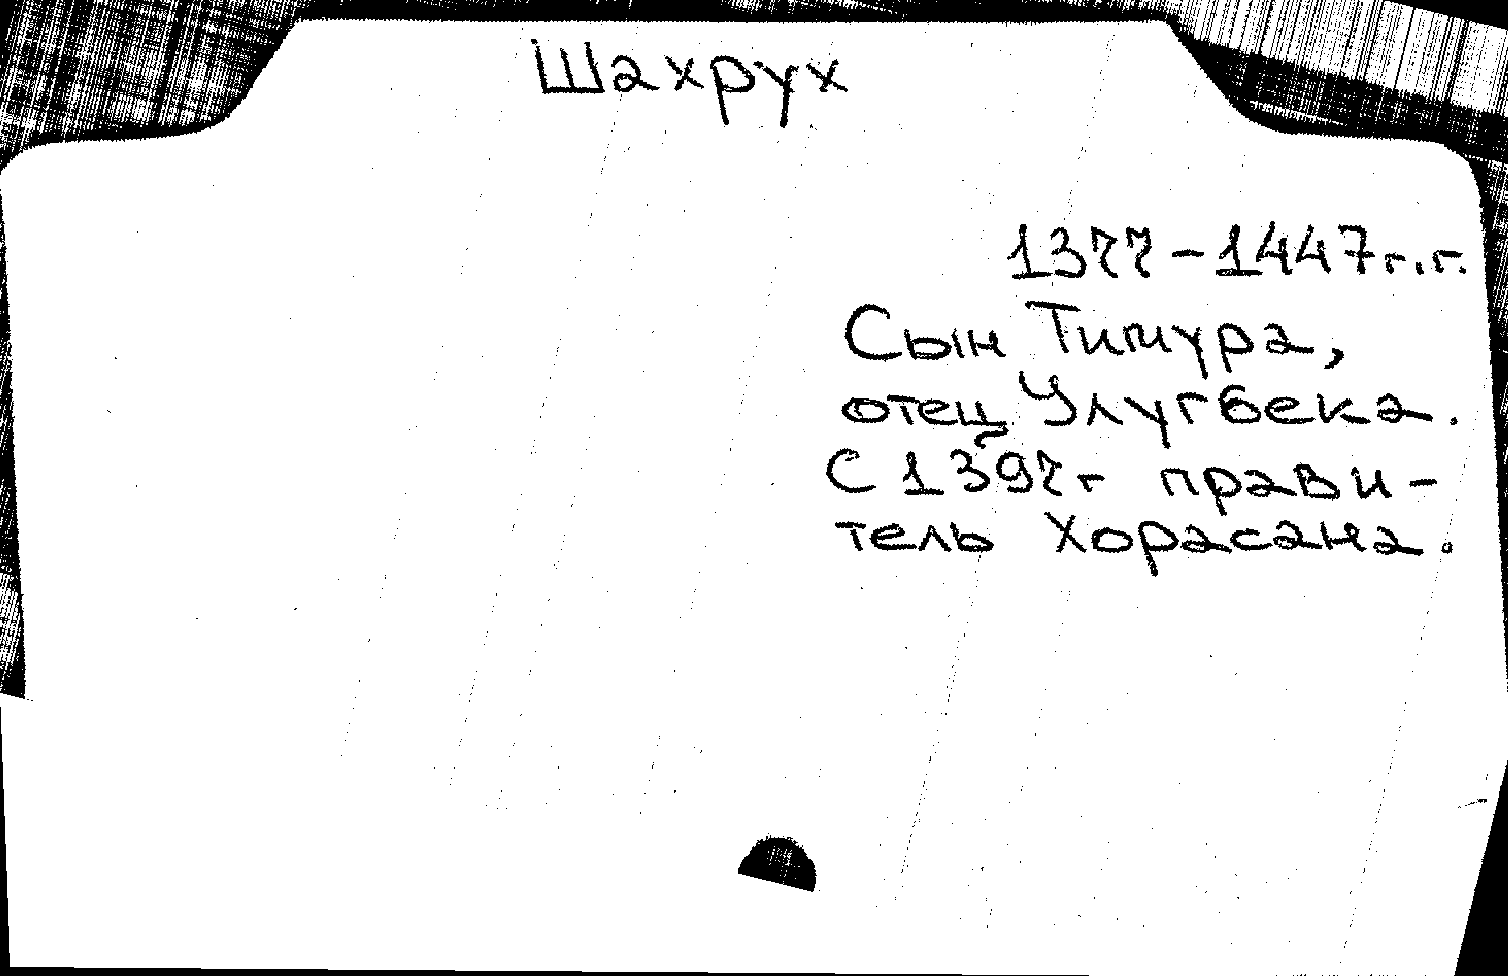 Шахрух
1377-1447г.г.
Сын Тимура,
отец Улугбека.
С 1397г прави-
тель Хорасана.